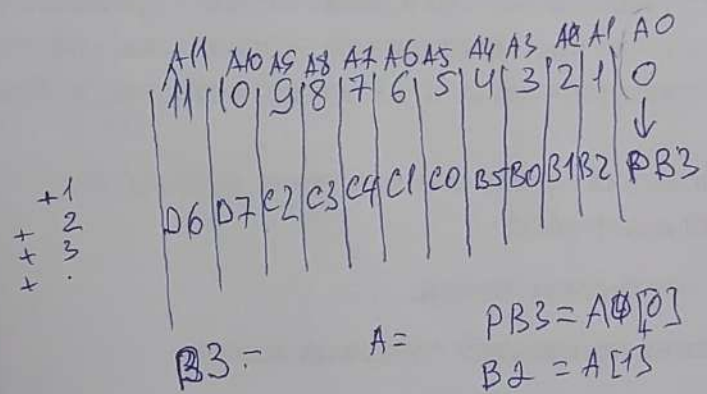 A11 A10 A9 A8 A7 A6 A5 A4 A3 A2 A1 A0
11 10 9 8 7 6 5 4 3 2 1 0
↓
D6 D7 C2 C3 C4 C1 C0 B5 B0 B1 B2 PB3
+1
+ 2
+ 3
+ .
B3 = A= PB3 = A[0]
B2 = A[1]